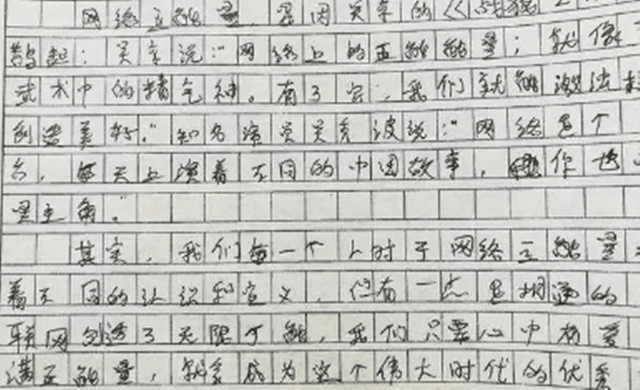 网络正能量,是因关注的《
鹊起:吴京说:“网络上的正能量;就像
武术中的精气神。有了它,我们就能激浊
创造美好。”知名演员关秀波说:“网络是个
台,每天上演着不同的中国故事,你也
是主角。”
其实,我们每一个人对于网络正能量
着不同的认识和定义,但有一点是相通的
联网创造了无限可能,我们只要心中有爱
满正能量,就能成为这个伟大时代的优秀